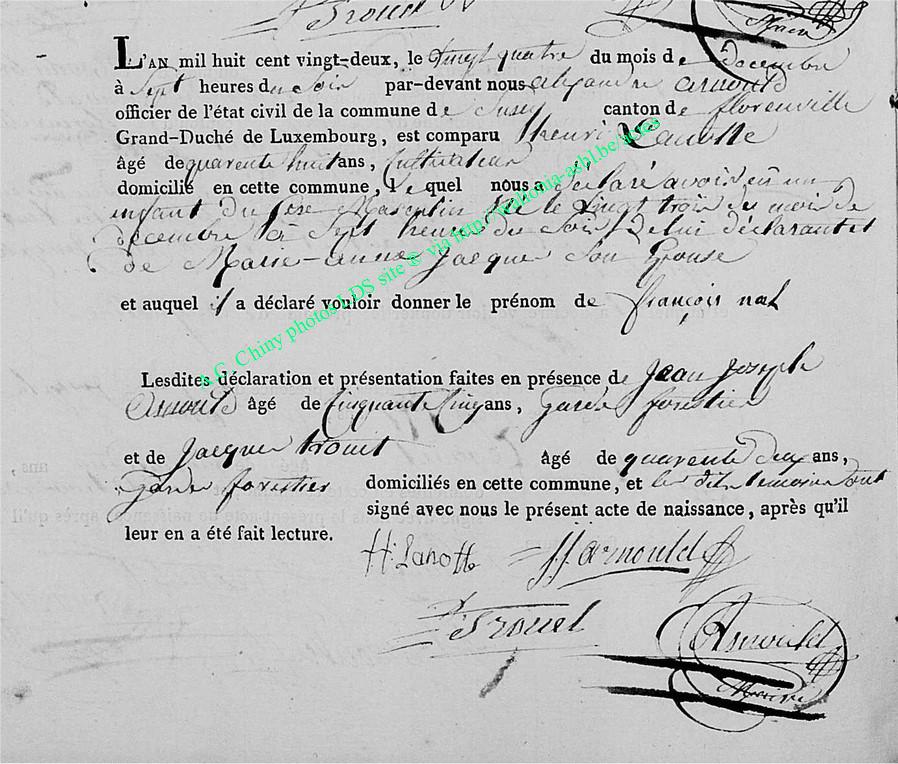 Trouet
Maire
L'AN mil huit cent vingt-deux, le vingt quatre du mois de decembre
à sept heures du soir par-devant nous alexandre arnould
officier de l'état civil de la commune de Suxy canton de florenville
Grand-Duché de Luxembourg, est comparu henri Lanotte
âgé de quarente huit ans, Cultivateur
domicilié en cette commune, le quel nous a déclaré avoir eü un
enfant du sexe Masculin né le vingt trois du mois de
decembre à sept heures du soir de lui déclarant et
de Marie-anne Jacques son Epouse
et auquel il a déclaré vouloir donner le prénom de françois noel
Lesdites déclaration et présentation faites en présence de Jean Joseph
Arnould âgé de Cinquante Cinq ans, garde forestier
et de Jacques trouet âgé de quarente deux ans,
garde forestier domiciliés en cette commune, et les dits temoins sont
signé avec nous le présent acte de naissance, après qu'il
leur en a été fait lecture.
H: Lanotte JJ arnould
Trouet Arnould
Maire
A.G. Chiny photos LDS site ® via http://wallonia-asbl.be/actes